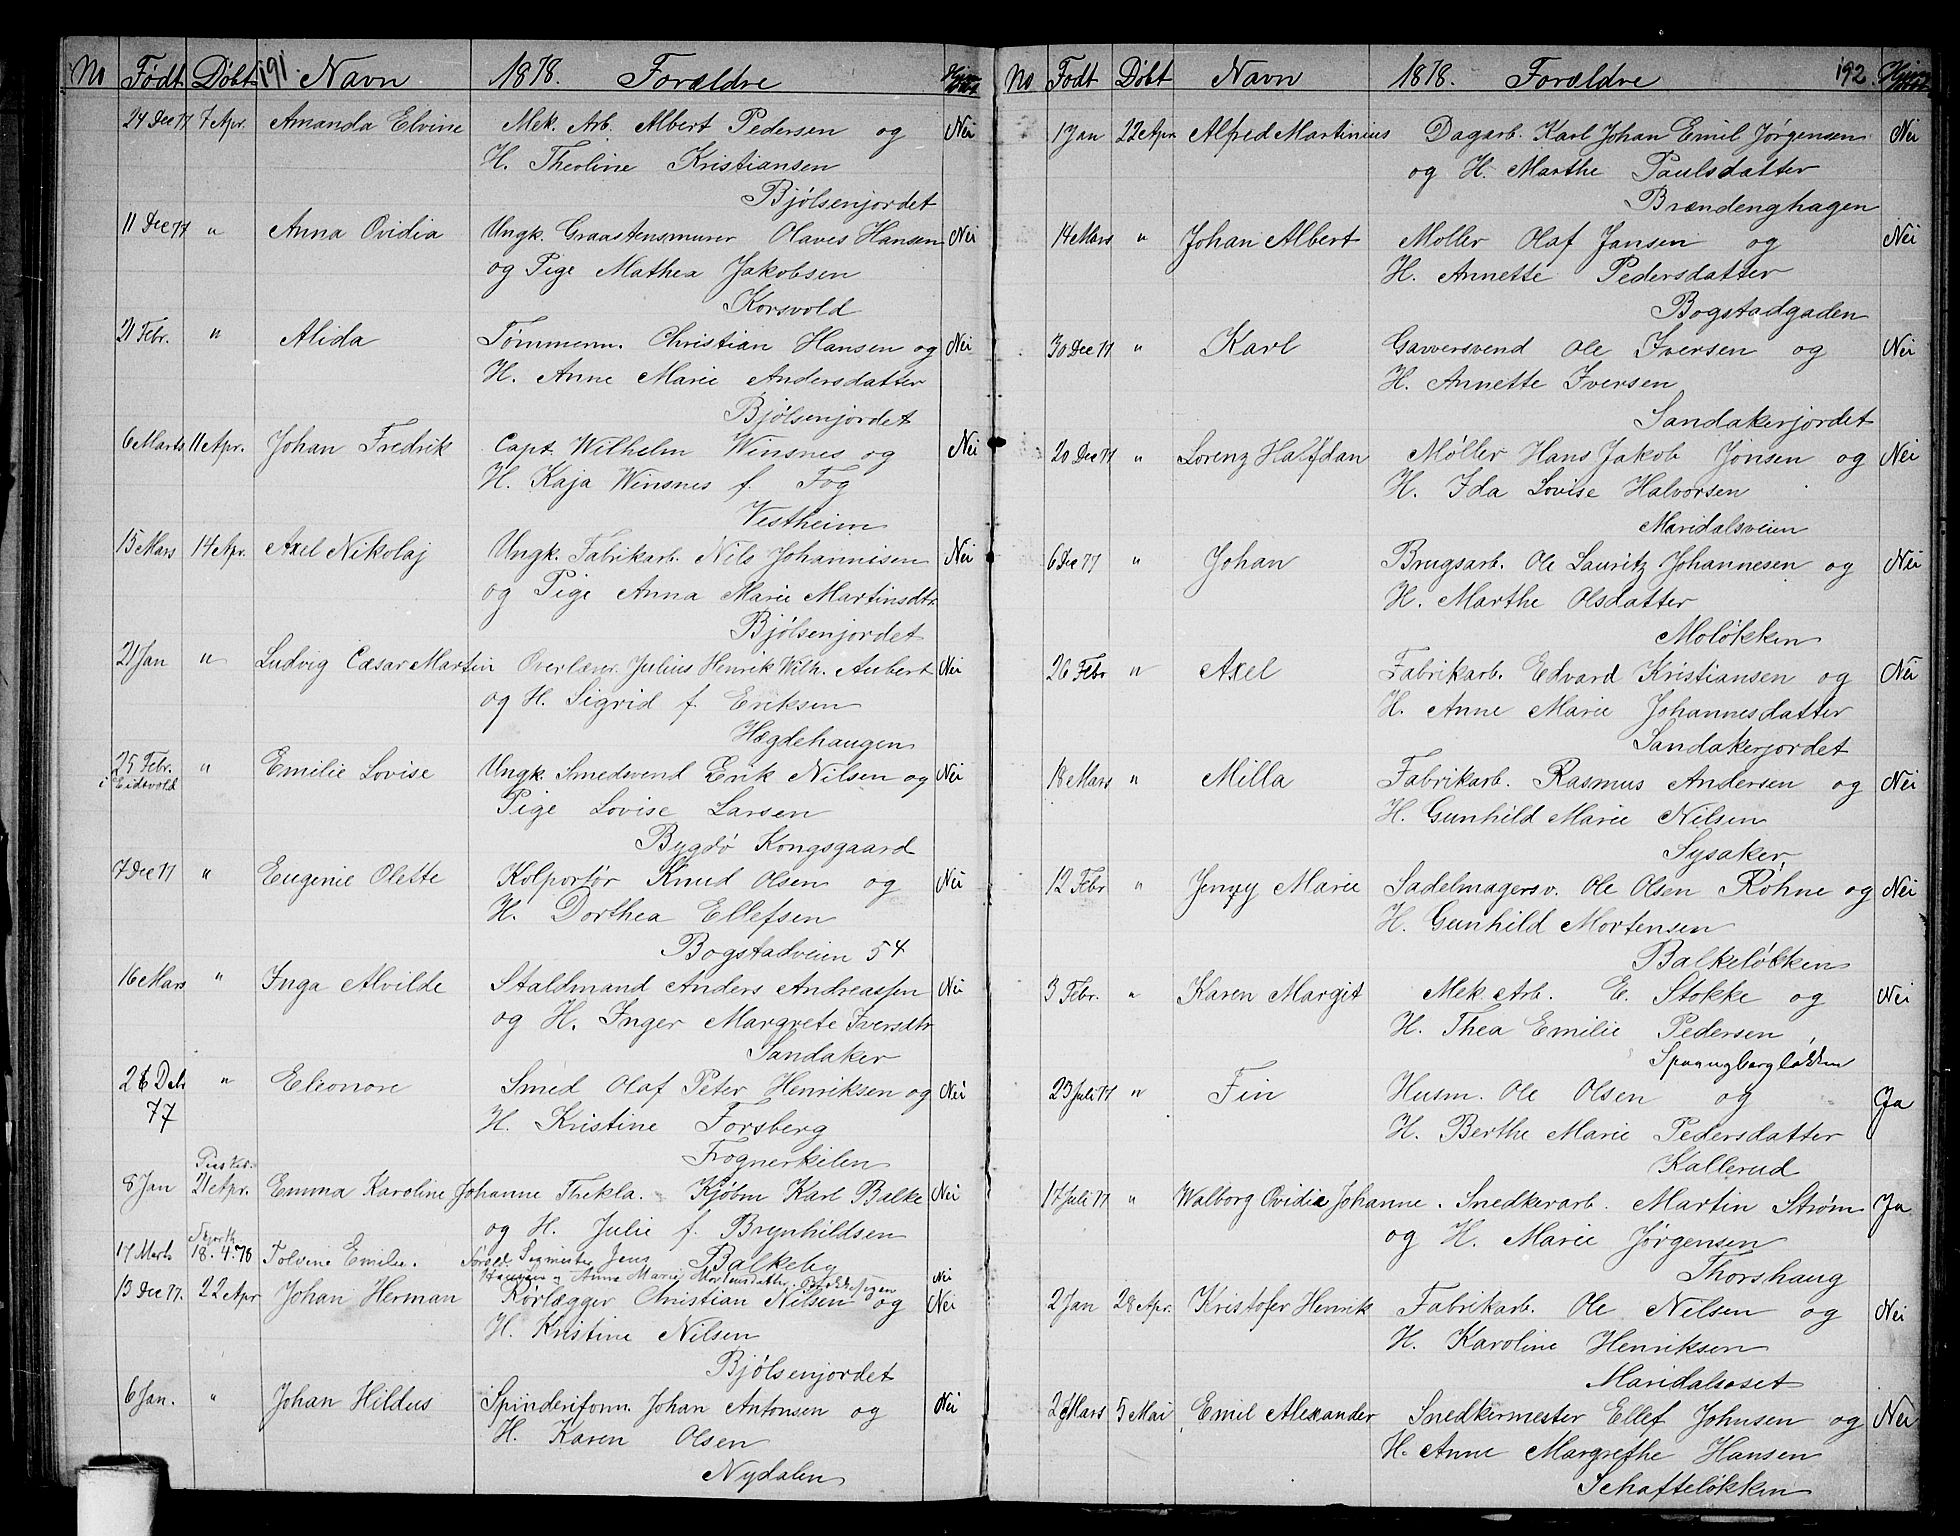 No Født Døbt 191. Navn 1878. Forældre
24 Dec 77 7 Apr. Amanda Elvine Mek. Arb. Albert Pedersen og Nei
H. Theoline Kristiansen
Bjølsenjordet
11 Dec 77 " Anna Ovidia Ungk. Graastensmurer Olaves Hansen Nei
og Pige Mathea Jakobsen
Korsvold
21 Febr. " Alida Tømmerm. Christian Hansen og Nei
H. Anne Marie Andersdatter
Bjølsenjordet
6 Marts 11 Apr. Johan Fredrik Capt. Wilhelm Winsnes og Nei
H. Kaja Winsnes f. Fog
Vestheim
15 Mars 14 Apr. Axel Nikolaj Ungk. Fabrikarb. Nils Johannisen Nei
og Pige Anna Marie Martinsdtr
Bjølsenjordet
21 Jan " Ludvig Cæsar Martin Overlærer Julius Henrik Wilh. Aubert Nei
og H. Sigrid f. Eriksen
Hægdehaugen
25 Febr. " Emilie Lovise Ungk. Smedsvend Erik Nilsen og Nei
i Eidsvold
Pige Lovise Larsen
Bygdø Kongsgaard
7 Dec 77 " Eugenie Olette Kolportør Knud Olsen og Nei
H. Dorthea Ellefsen
Bogstadveien 54
16 Mars " Inga Alvilde Staldmand Anders Andreassen Nei
og H. Inger Margrete Iversdtr
Sandaker
26 Deb " Eleonore Smed Olaf Peter Henriksen og Nei
77 H. Kristine Forsberg
Frognerkilen
8 Jan 21 Apr. Emma Karoline Johanne Thekla. Kjøbm Karl Balke Nei
og H. Julie f. Brynhildsen
Balkeby
17 Marts 18.4.78 Tolvine Emilie. Jens
Hansen " Anne Marie Mortensdatter. Nei
13 Dec 77. 22 Apr Johan Herman Rørlægger Christian Nilsen og Nei
H. Kristine Nilsen
Bjølsenjordet
6 Jan. " Johan Hildus Spinderiform. Johan Antonsen og Nei
H. Karen Olsen
Nydalen
No Født Døbt Navn 1878. Forældre 192.
1 Jan 22 Apr Alfred Martinius Dagarb. Karl Johan Emil Jørgensen Nei
og H. Marthe Paulsdatter
Brændenghagen
14 Mars " Johan Albert Møller Olaf Jansen og Nei
H. Annette Pedersdatter
Bogstadgaden
30 Dec 77 " Karl Garversvend Ole Iversen og Nei
H. Annette Iversen
Sandakerjordet
20 Dec 77 " Lorenz Halfdan Møller Hans Jakob Jonsen og Nei
H. Ida Lovise Halvorsen
Maridalsveien
6 Dec 77 " Johan Brugsarb. Ole Lauritz Johannesen og Nei
H. Marthe Olsdatter
Moløkken
26 Febr " Axel Fabrikarb. Edvard Kristiansen og Nei
H. Anne Marie Johannesdatter
Sandakerjordet
18 Mars " Milla Fabrikarb. Rasmus Andersen og Nei
H. Gunhild Marie Nilsen
Sysaker
12 Febr " Jenny Marie Sadelmagersv. Ole Olsen Røhne og Nei
H. Gunhild Mortensen
Balkeløkken
3 Febr. " Karen Margit Mek. Arb. E. Stokke og Nei
H. Thea Emilie Pedersen
Spangbergløkken
23 Juli 77 " Fin Husm. Ole Olsen og Ja
H. Berthe Marie Pedersdatter
Kallerud
17 Juli 77 " Walborg Ovidia Johanne. Snedkerarb. Martin Strøm Ja
og H. Marie Jørgensen
Thorshaug
2 Jan 28 Apr. Kristofer Henrik Fabrikarb. Ole Nilsen og Nei
H. Karoline Henriksen
Maridalsoset
Mars 5 Mai Emil Alexander Snedkermester Ellef Johnsen og Nei
H. Anne Margrethe Hansen
Schafteløkken